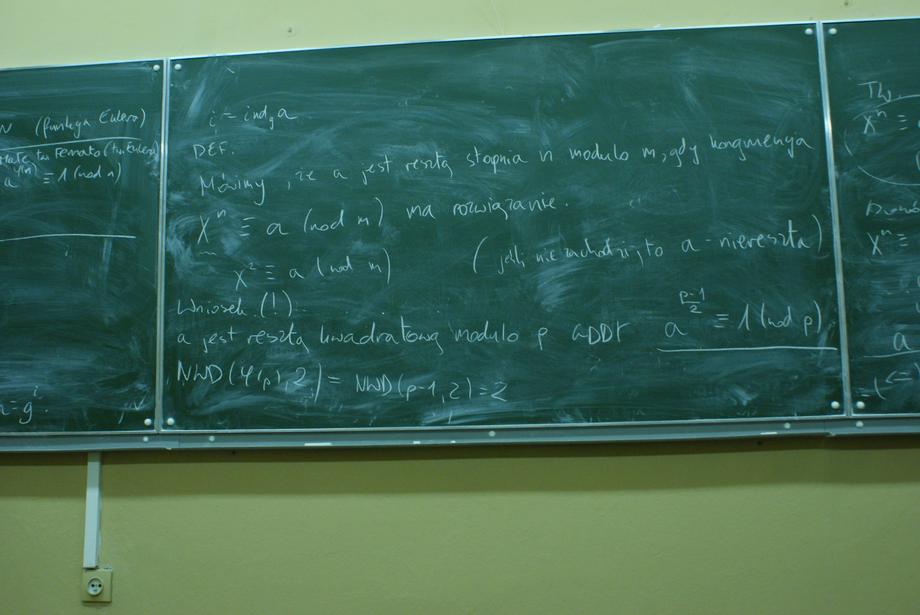 (funkcja Eulera)
Małe tw. Fermata (tw. Eulera)
≡ 1 (mod n)
= g^i.
i = ind_g a
DEF.
Mówimy, że a jest resztą stopnia n modulo m, gdy kongruencja
X^n ≡ a (mod m) ma rozwiązanie.
X^2 ≡ a (mod m) (jeśli nie zachodzi, to a - niereszta)
Wniosek (!)
a jest resztą kwadratową modulo p WDDT a^{\frac{p-1}{2}} ≡ 1 (mod p)
NWD(φ(p), 2) = NWD(p-1, 2) = 2
Tw.
X^n ≡
X^n ≡
a
(<=)